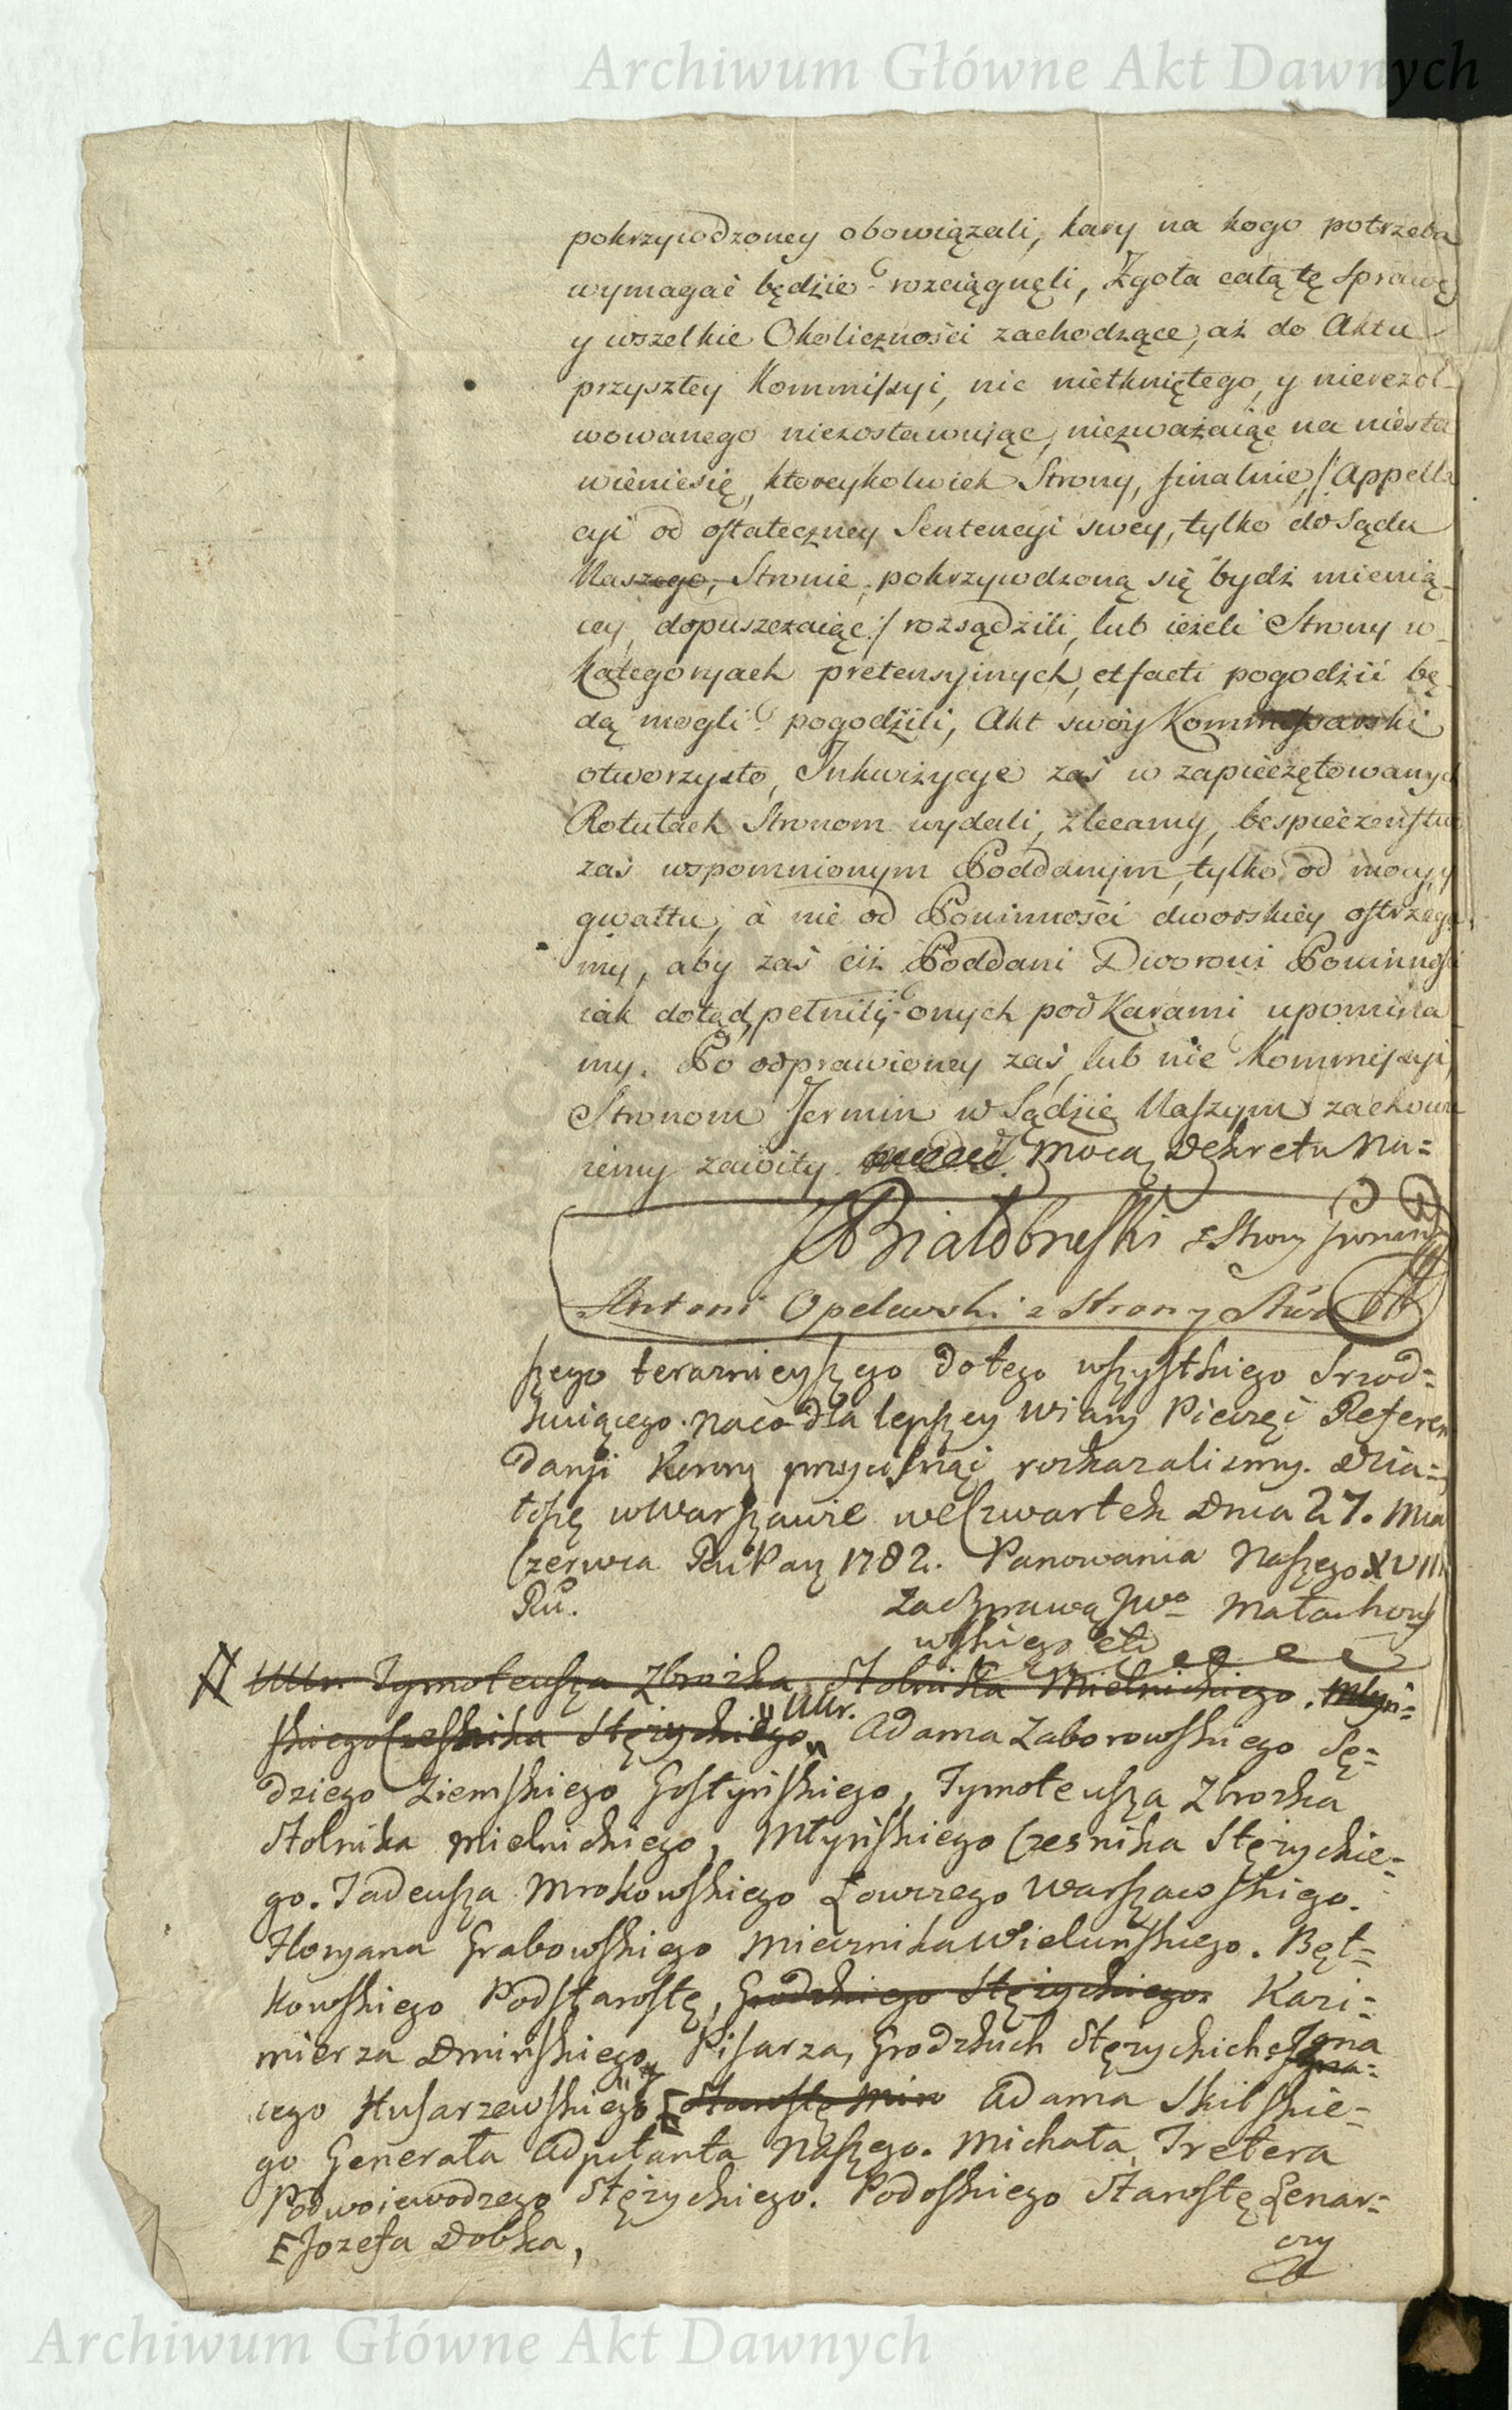 Archiwum Główne Akt Dawnych
pokrzywdzoney obowiązali, kary na kogo potrzeba
wymagać będzie rozciągnęli, Zgoła całą tę Sprawę
y wszelkie Okoliczności zachodzące, aż do Aktu
przyszłey Kommissyi, nic nietkniętego, y nierezol-
wowanego niezostawuiąc, niezważaiąc na niesta
wieniesię, ktoreykolwiek Strony, finalnie /: Appella
cyi od ostateczney Sentencyi swey, tylko do Sądu
Naszego, Stronie, pokrzywdzoną się bydż mienią-
cey, dopuszczaiąc :/ rozsądzili, lub ieżeli Strony w-
Kategoryach pretensyinych, et facti pogodzić bę-
dą mogli pogodzili, Akt swóy Kommissarski
otworzysto, Inkwizycye zaś w zapieczętowanych
Rotułach Stronom wydali, zlecamy, bespieczeństwo
zaś wspomnionym Poddanym, tylko od mocy, y
gwałtu, à nie od Powinności dworskiey ostrzega
my, aby zaś ciż Poddani Dworowi Powinności
iak dotąd pełnili, onych pod Karami upomina
my. Po odprawioney zaś, lub nie Kommissyi,
Stronom Termin w Sądzie Naszym zachowu
iemy zawity. mocą Dekretu Na=
Białobrzeski z Strony
Antoni Opelewski z Strony
szego teraznieyszego do tego wszystkiego Srzod=
kuiącego. Na co dla lepszey wiary Pieczęć Referen
daryi Koronney przycisnąć rozkazalismy. Dzia=
ło się w Warszawie we Czwartek Dnia 27. Mca
Czerwca Roku Pań 1782. Panowania Naszego XVIII
Ru.
Za Sprawą JWo Małachow
wskiego etc
Urr. Tymoteusza Zbrożka Stolnika Mielnickiego. Młyń=
skiego Czesnika Stężyckiego Urr. Adama Zaborowskiego Sę=
dziego Ziemskiego Gostyńskiego, Tymoteusza Zbrożka
Stolnika Mielnickiego, Młyńskiego Czesnika Stężyckie=
go. Tadeusza Mrokowskiego Łowczego Warszawskiego.
Floryana Grabowskiego Miecznika Wieluńskiego. Bęt=
kowskiego Podstarostę, Grodzkiego Stężyckiego. Kazi=
mierza Dmińskiego Pisarza, Grodzkich Stężyckich, Igna
cego Husarzewskiego, Starostę Adama Skilskie=
go Generała Adjutanta Naszego. Michała Tretera
Podwoiewodzego Stężyckiego. Podoskiego Starostę Łenar=
Jozefa Dobka, czy
Archiwum Główne Akt Dawnych